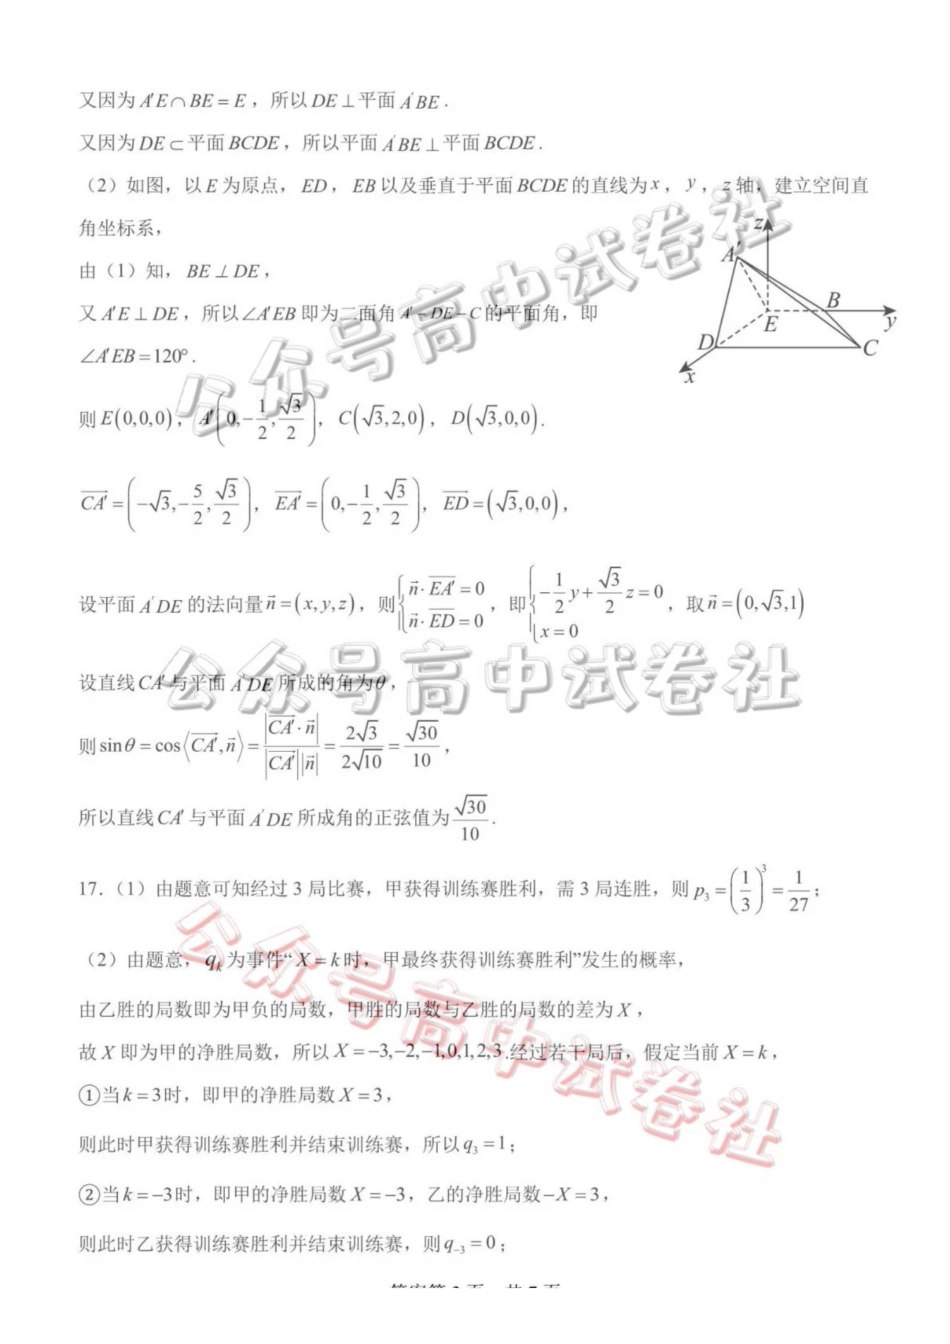 又因为 A'E∩BE=E，所以 DE⊥平面 A'BE.
又因为 DE⊂平面 BCDE，所以平面 A'BE⊥平面 BCDE.
（2）如图，以 E 为原点，ED，EB 以及垂直于平面 BCDE 的直线为 x，y，z 轴，建立空间直
角坐标系，
由（1）知，BE⊥DE，
又 A'E⊥DE，所以∠A'EB 即为二面角 A'-DE-C 的平面角，即
∠A'EB=120°.
z
A'
B
E
y
D
C
x
则 E(0,0,0)，A'(0,-1/2,√3/2)，C(√3,2,0)，D(√3,0,0).
CA'=(-√3,-5/2,√3/2)，EA'=(0,-1/2,√3/2)，ED=(√3,0,0)，
设平面 A'DE 的法向量 n=(x,y,z)，则{n·EA'=0, n·ED=0，即{-1/2y+√3/2z=0, x=0，取 n=(0,√3,1)
设直线 CA' 与平面 A'DE 所成的角为θ，
则 sinθ=cos⟨CA',n⟩=|CA'·n|/|CA'||n|=2√3/2√10=√30/10，
所以直线 CA' 与平面 A'DE 所成角的正弦值为 √30/10.
17.（1）由题意可知经过 3 局比赛，甲获得训练赛胜利，需 3 局连胜，则 p₃=(1/3)³=1/27；
（2）由题意，qₖ为事件“X=k时，甲最终获得训练赛胜利”发生的概率，
由乙胜的局数即为甲负的局数，甲胜的局数与乙胜的局数的差为 X，
故 X 即为甲的净胜局数，所以 X=-3,-2,-1,0,1,2,3.经过若干局后，假定当前 X=k，
①当 k=3时，即甲的净胜局数 X=3，
则此时甲获得训练赛胜利并结束训练赛，所以 q₃=1；
②当 k=-3时，即甲的净胜局数 X=-3，乙的净胜局数-X=3，
则此时乙获得训练赛胜利并结束训练赛，则 q₋₃=0；
公众号高中试卷社
公众号高中试卷社
公众号高中试卷社